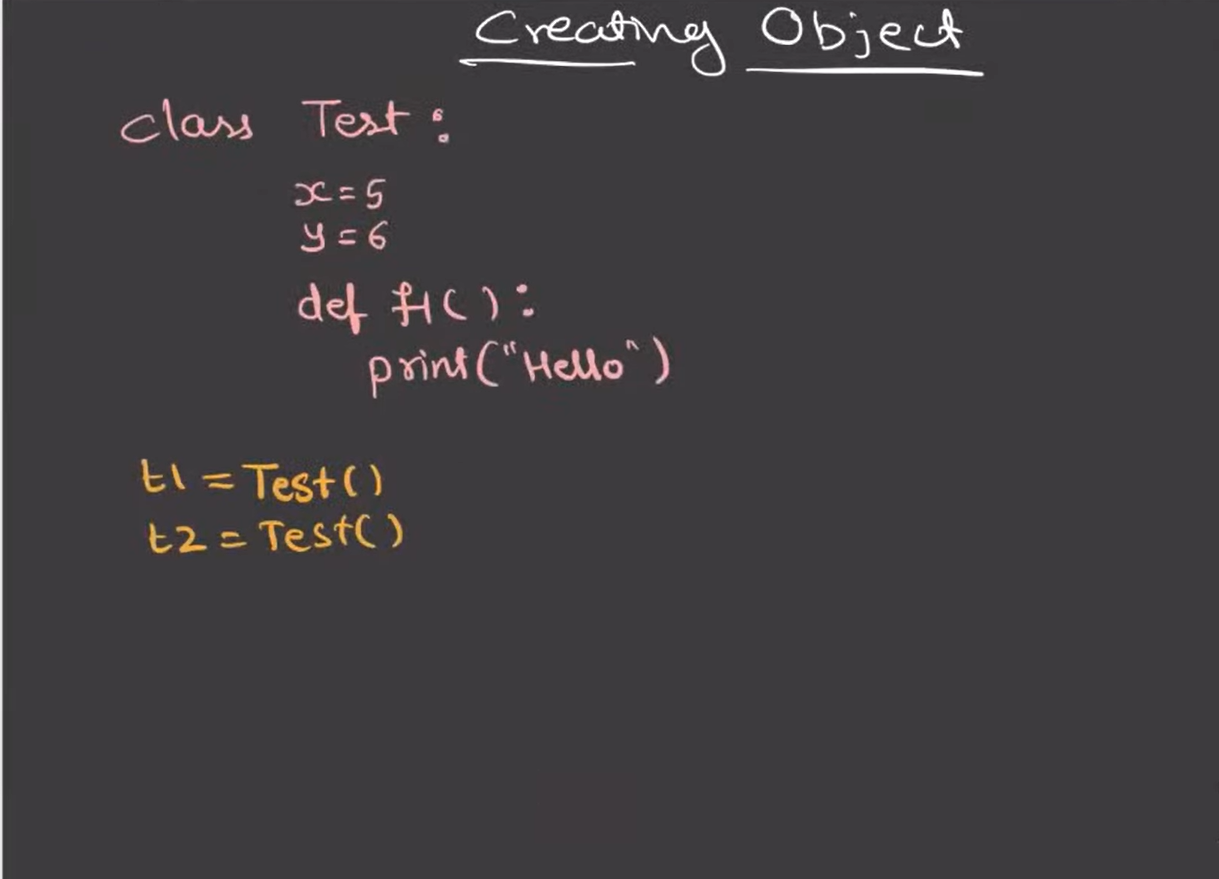 Creating Object
class Test:
x=5
y=6
def f1():
print("Hello")
t1=Test()
t2=Test()